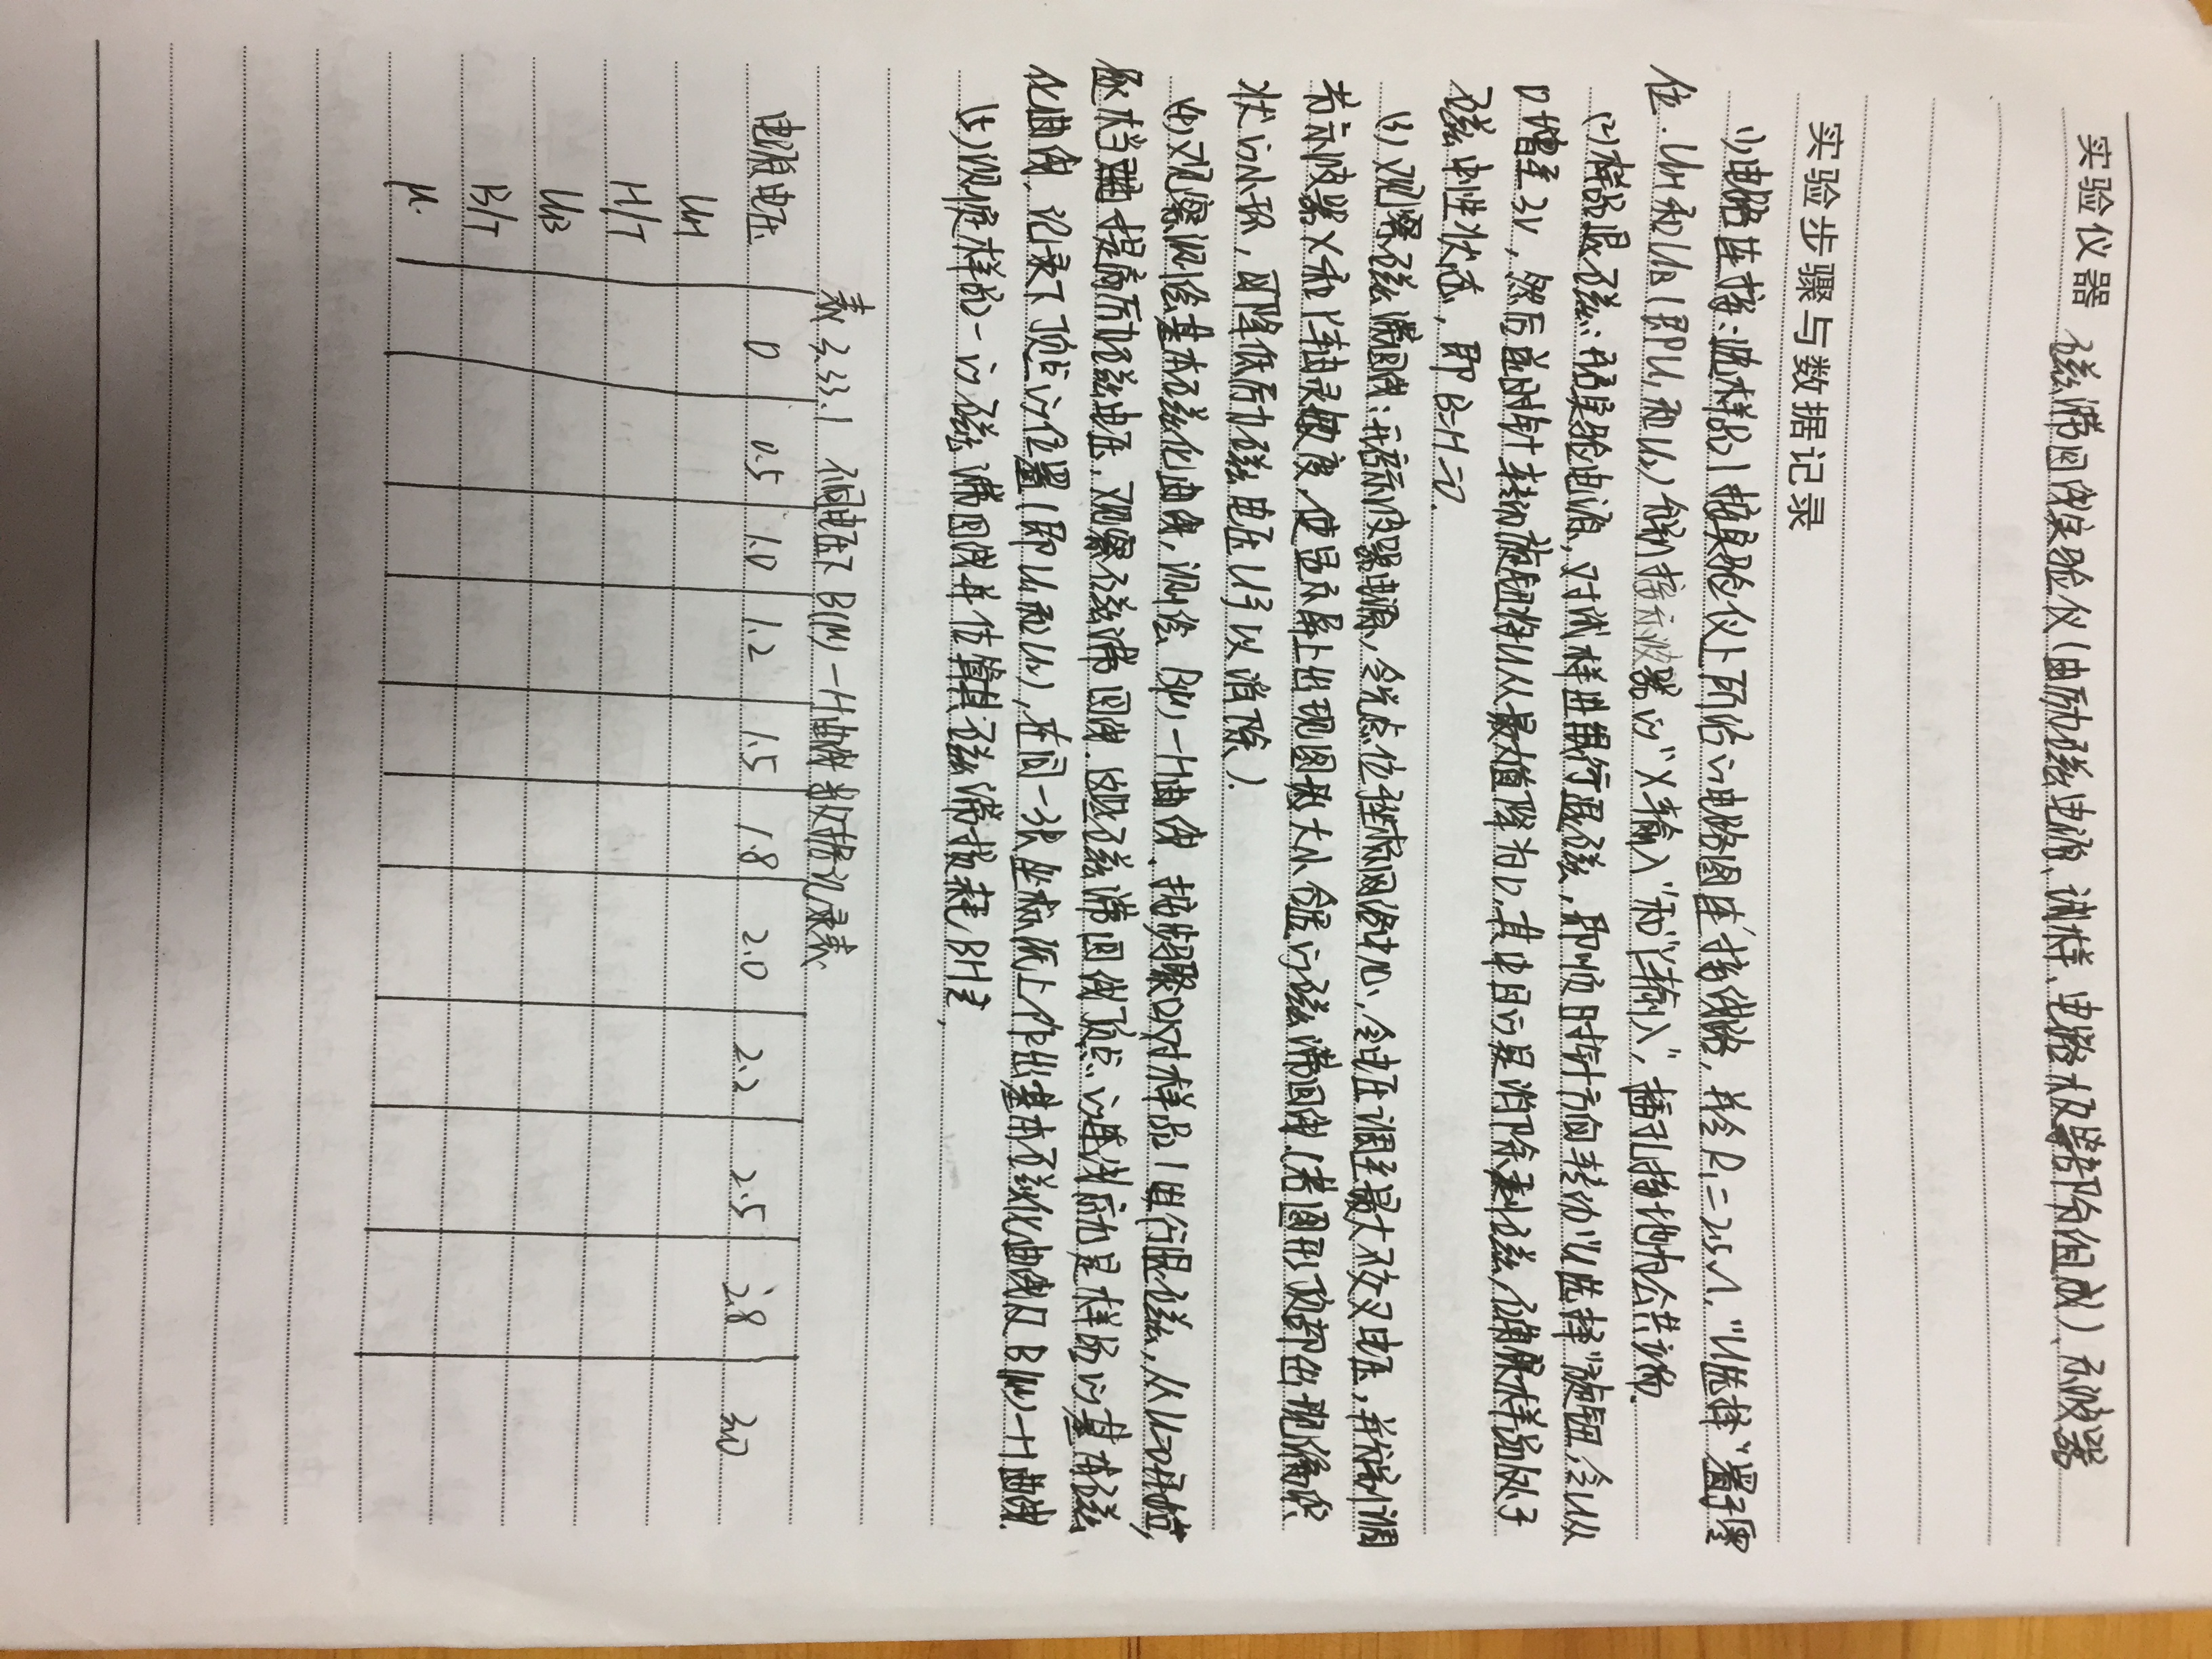 实验仪器 磁滞回线实验仪(由励磁电源、试样、电路板及等部分组成)、示波器
实验步骤与数据记录
(1)电路连接:选样品1按实验仪上所给的电路图连接线路,并令R₁=2.5Ω,“U选择”置于零
位.UH和UB(即U₁和U₂)分别接示波器的“X输入”和“Y输入”,插孔接地为公共端.
(2)样品退磁:开启实验电源,对试样进行退磁,即顺时针方向转动“U选择”旋钮,令U从
0增至3V,然后逆时针转动旋钮将U从最大值降为0,其中目的是消除剩磁,确保样品处于
磁中性状态,即B=H=0.
(3)观察磁滞回线:开启示波器电源,令光点位于坐标网络中心,令电压调至最大不交叉电压,并分别调
节示波器X和Y轴灵敏度,使显示屏上出现图形大小合适的磁滞回线(若图形顶部出现编织
状的小环,可降低励磁电压U予以消除).
(4)观察测绘基本磁化曲线,测绘B(μ)-H曲线.按步骤(2)对样品1进行退磁,从U=0开始,
逐档提高励磁电压,观察磁滞回线.这些磁滞回线顶点的连线就是样品的基本磁
化曲线,记录下顶点的位置(即U₁和U₂),在同一张坐标纸上作出基本磁化曲线及B(μ)-H曲线.
(5)测定样品一的磁滞回线并估算其磁滞损耗BH之,
表3.33.1 不同电压下B(M)-H曲线数据记录表
电源电压 0 0.5 1.0 1.2 1.5 1.8 2.0 2.2 2.5 2.8 3.0
UH
H/T
UB
B/T
μ